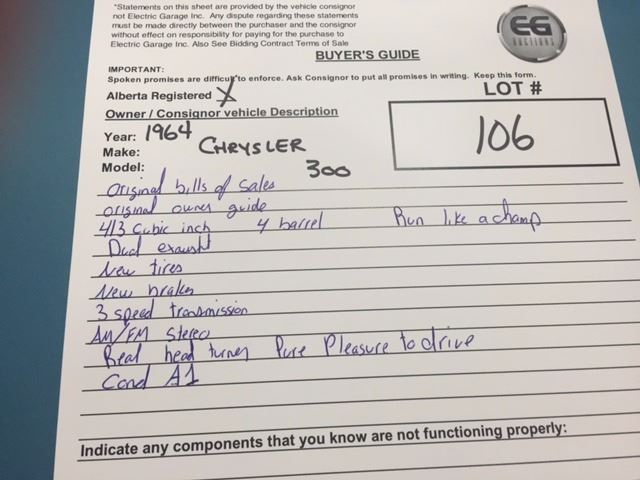 "Statements on this sheet are provided by the vehicle consignor
not Electric Garage Inc. Any dispute regarding these statements
must be made directly between the purchaser and the consignor
without effect on responsibility for paying for the purchase to
Electric Garage Inc. Also See Bidding Contract Terms of Sale
EG
AUCTIONS
BUYER'S GUIDE
IMPORTANT:
Spoken promises are difficult to enforce. Ask Consignor to put all promises in writing. Keep this form.
Alberta Registered X
LOT #
106
Owner / Consignor vehicle Description
Year: 1964
Make: CHRYSLER
Model: 300
Original bills of Sales
original owner guide
413 Cubic inch 4 barrel Run like a champ
Dual exaust
New tires
New brakes
3 speed transmission
AM/FM Stereo
Real head turner Pure Pleasure to drive
Cond A1
Indicate any components that you know are not functioning properly: